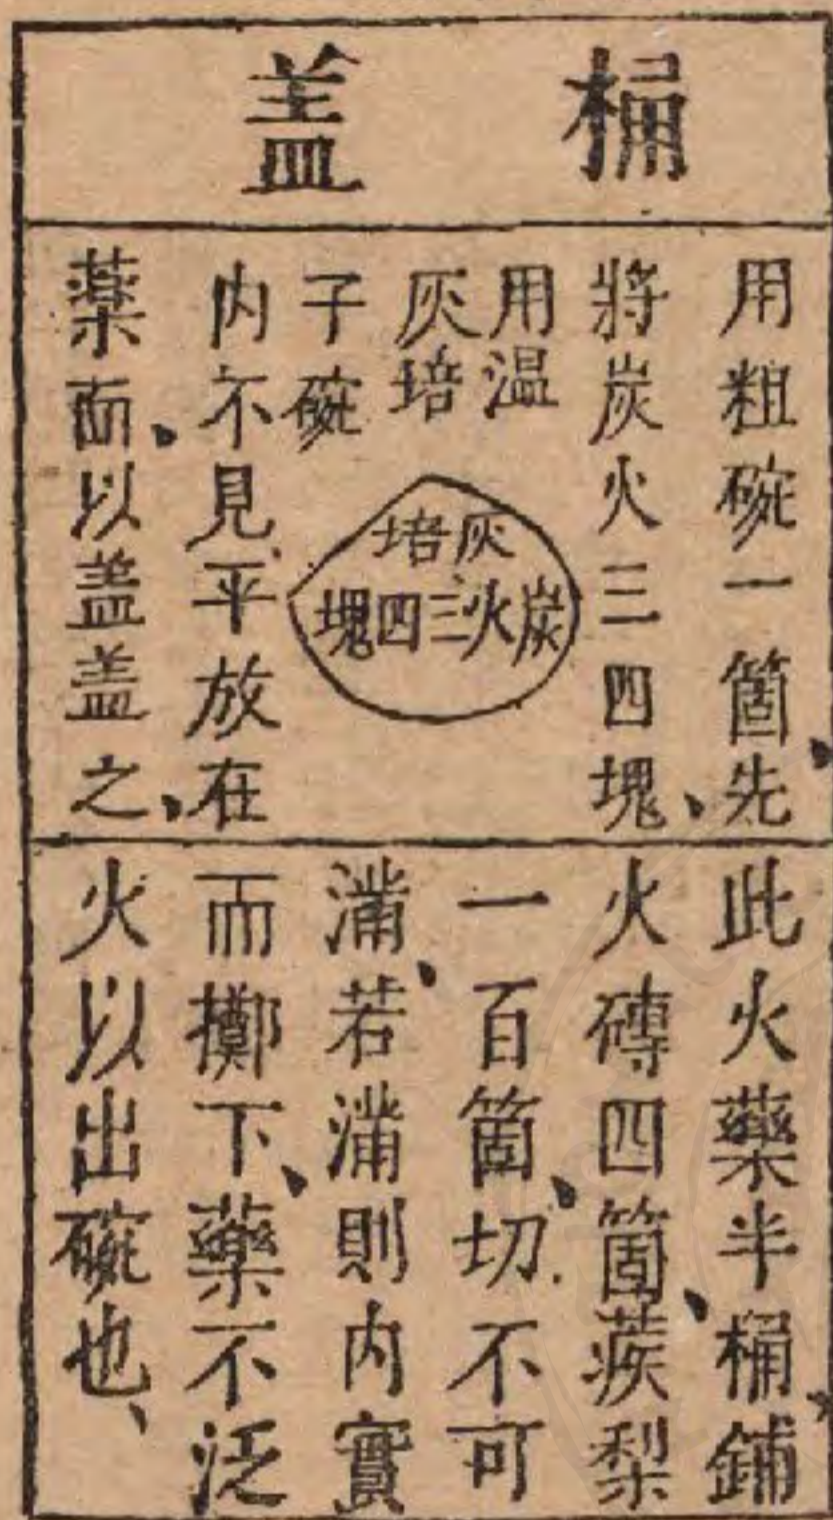 桶盖
用粗碗一箇、先
將炭火三四塊、
用温
灰培
子碗
内不見平放在
藥面、以盖盖之、
灰培
炭火三四塊
此火藥半桶、鋪
火磚四箇、蒺梨
一百箇、切不可
滿、若滿則内實
而擲下、藥不泛
火以出碗也、